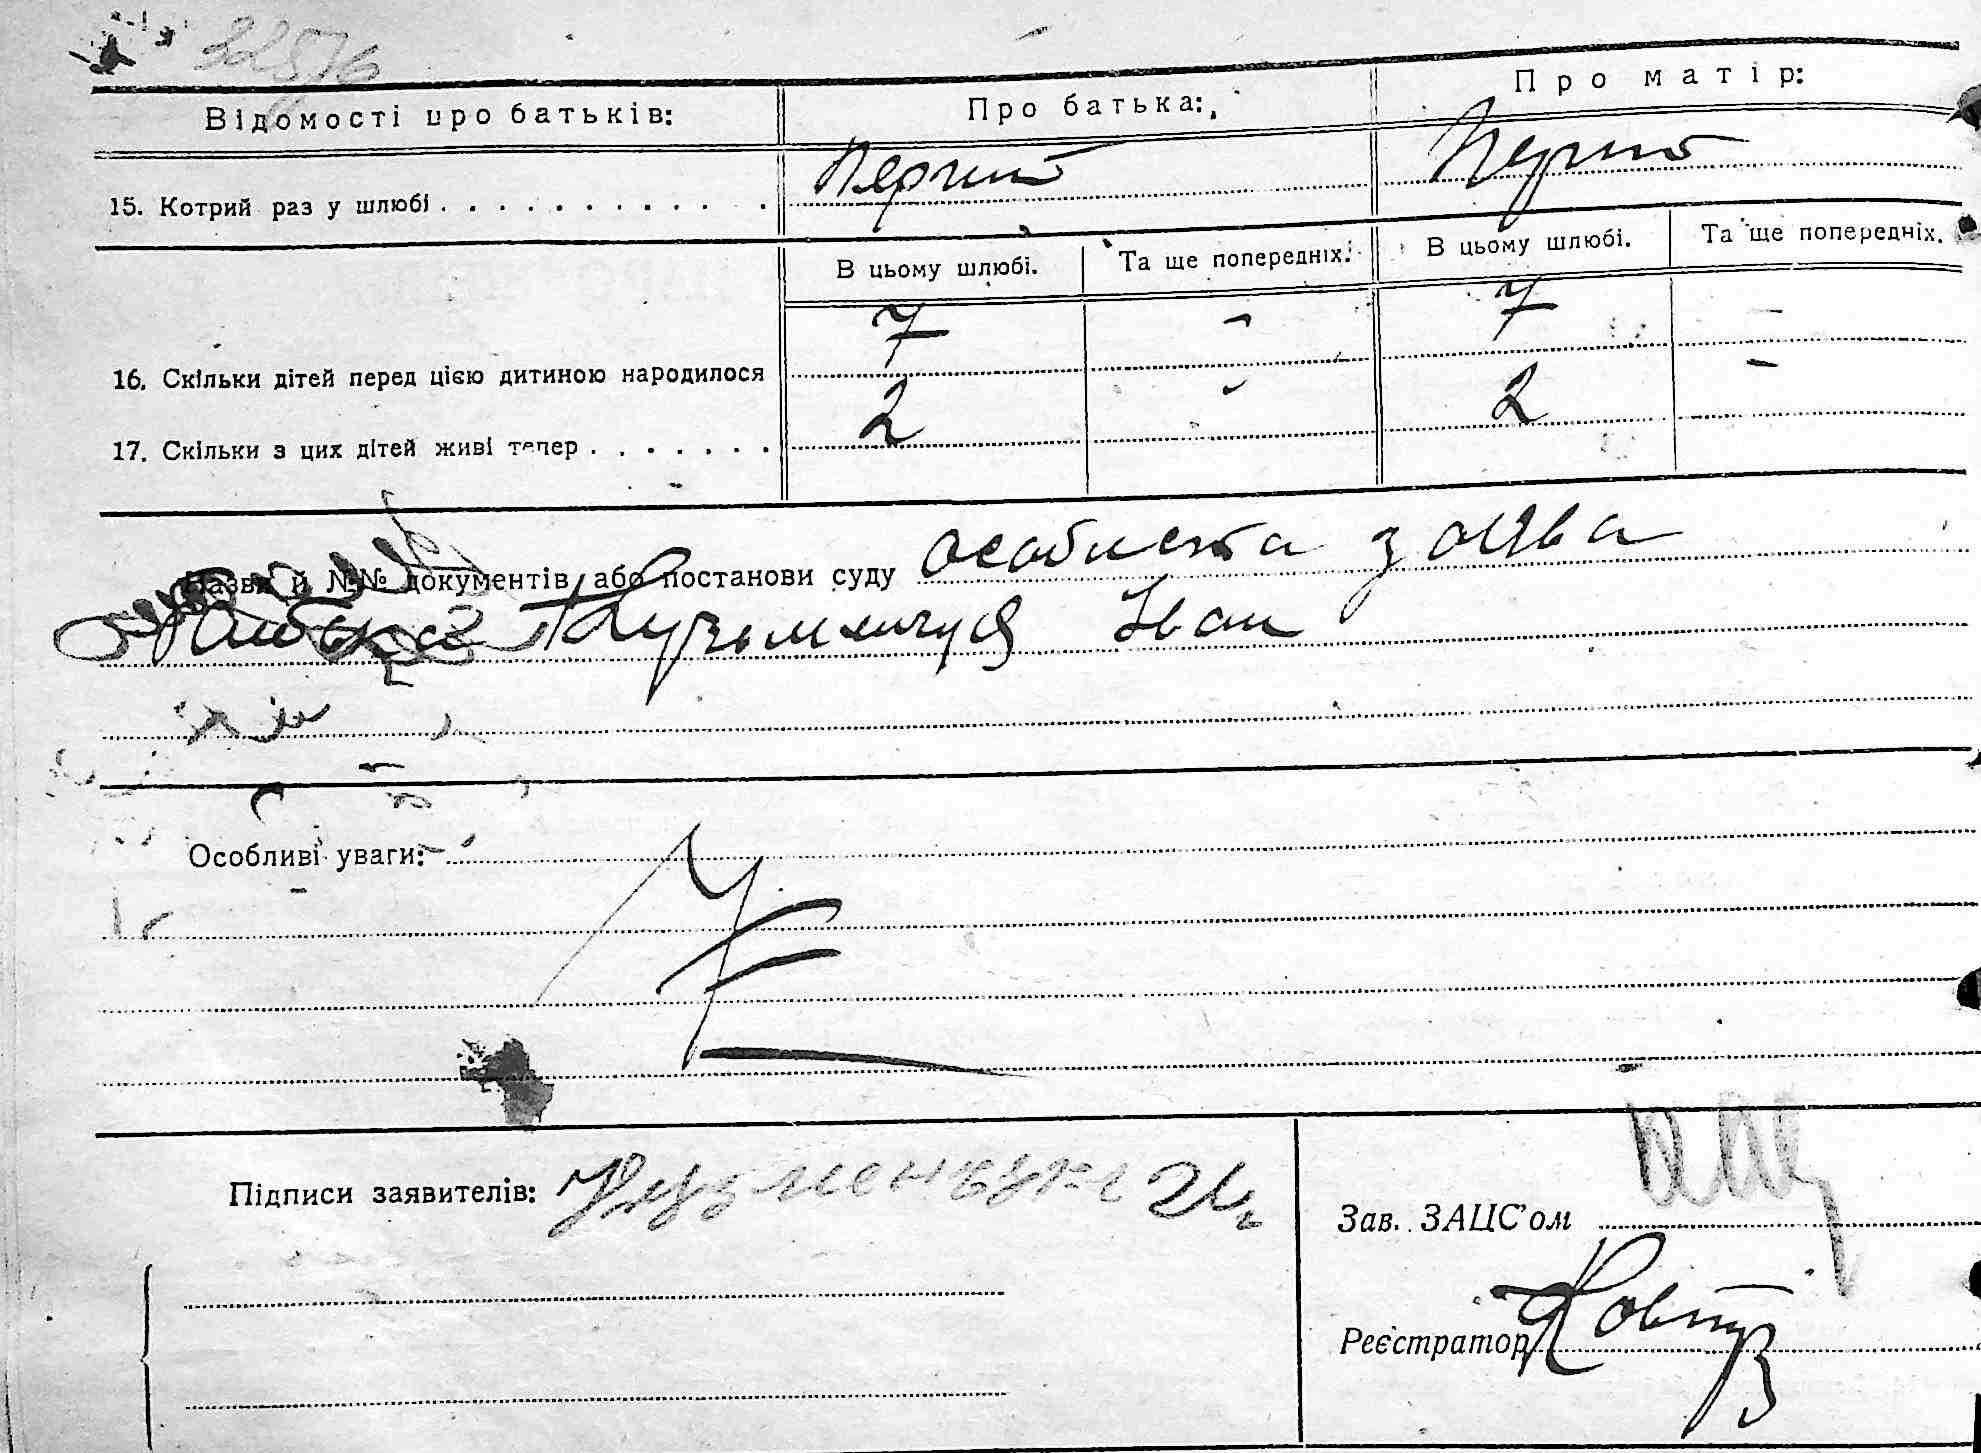 Відомості про батьків: Про батька: Про матір:
15. Котрий раз у шлюбі Перший Перший
В цьому шлюбі. Та ще попередніх. В цьому шлюбі. Та ще попередніх.
16. Скільки дітей перед цією дитиною народилося 7 - 7 -
17. Скільки з цих дітей живі тепер 2 - 2 -
Назви й №№ документів або постанови суду особиста заява
батька Іван
Особливі уваги:
Підписи заявителів:
Зав. ЗАЦС'ом
Реєстратор